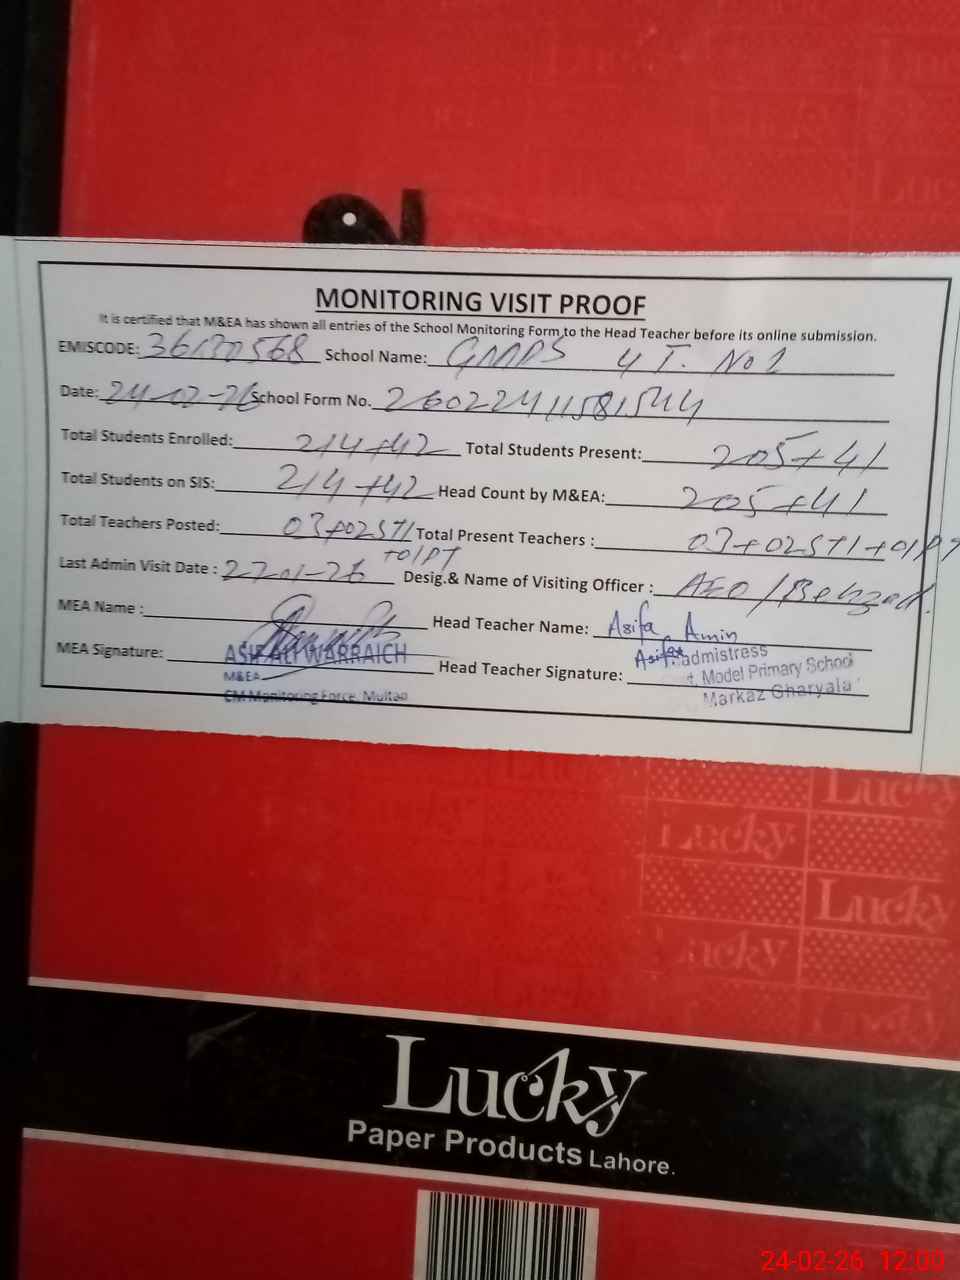 MONITORING VISIT PROOF
It is certified that M&EA has shown all entries of the School Monitoring Form to the Head Teacher before its online submission.
EMISCODE: 36130568 School Name: GMMPS 4 T. No 1
Date: 24-02-26 School Form No. 26022411581544
Total Students Enrolled: 214+42 Total Students Present: 205+41
Total Students on SIS: 214+42 Head Count by M&EA: 205+41
Total Teachers Posted: 03+02STI +01PT Total Present Teachers : 03+02STI+01PT
Last Admin Visit Date : 27-01-26 Desig.& Name of Visiting Officer : AEO / Behzad.
MEA Name : Head Teacher Name: Asifa Amin
MEA Signature: ASIF ALI WARRAICH Head Teacher Signature: Asifa admistress
M&EA t. Model Primary School
CM Monitoring Force, Multan Markaz Gharyala
Lucky
Lucky
Lucky
Lucky
Lucky
Paper Products Lahore.
24-02-26 12:00